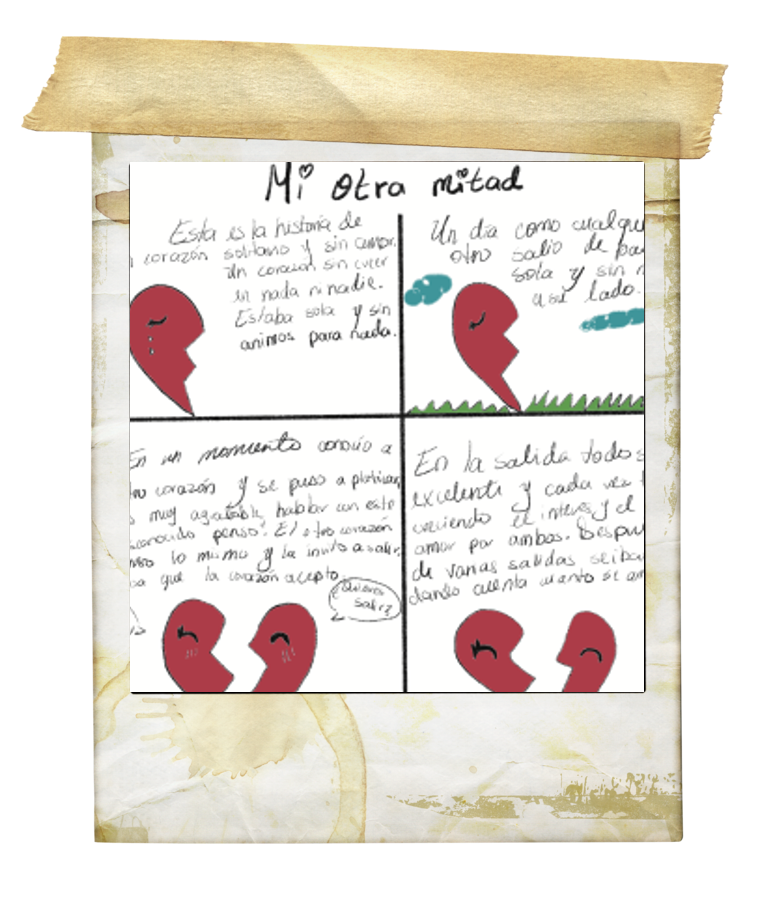 Mi otra mitad
Esta es la historia de
corazón solitario y sin amor.
Un corazón sin creer
en nada ni nadie.
Estaba sola y sin
animos para nada.
Un dia como cualqu
otro salio de pa
sola y sin n
a su lado.
En un momento conocio a
corazón y se puso a platicar
muy agradable hablar con este
penso". El otro corazón
lo mismo y la invito a salir
que la corazón acepto.
¿Quieres
Salir?
En la salida todo s
excelente y cada vez
creciendo el interes y el
amor por ambos. Despu
de varias salidas se iba
dando cuenta cuanto se am